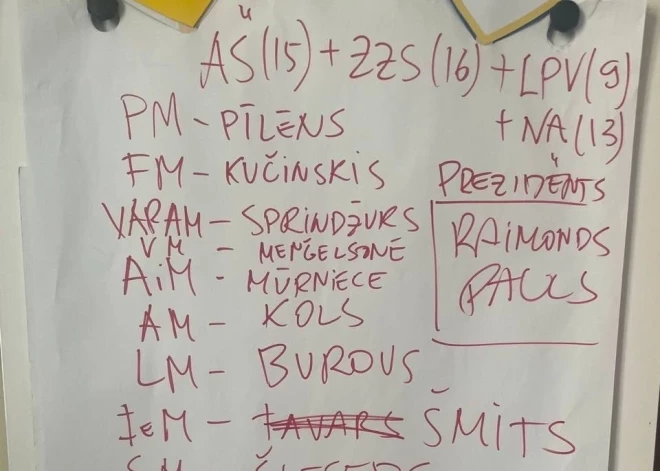 AŠ(15)+ZZS(16)+LPV(9)
+NA(13)
PM-PĪLĒNS
FM-KUČINSKIS
VARAM-SPRINDŽUKS
VM - MEŅĢELSONE
AiM - MŪRNIECE
AM - KOLS
LM - BUROVS
IeM - TAVARS ŠMITS
SM - ŠLESERS
PREZIDENTS
RAIMONDS
PAULS